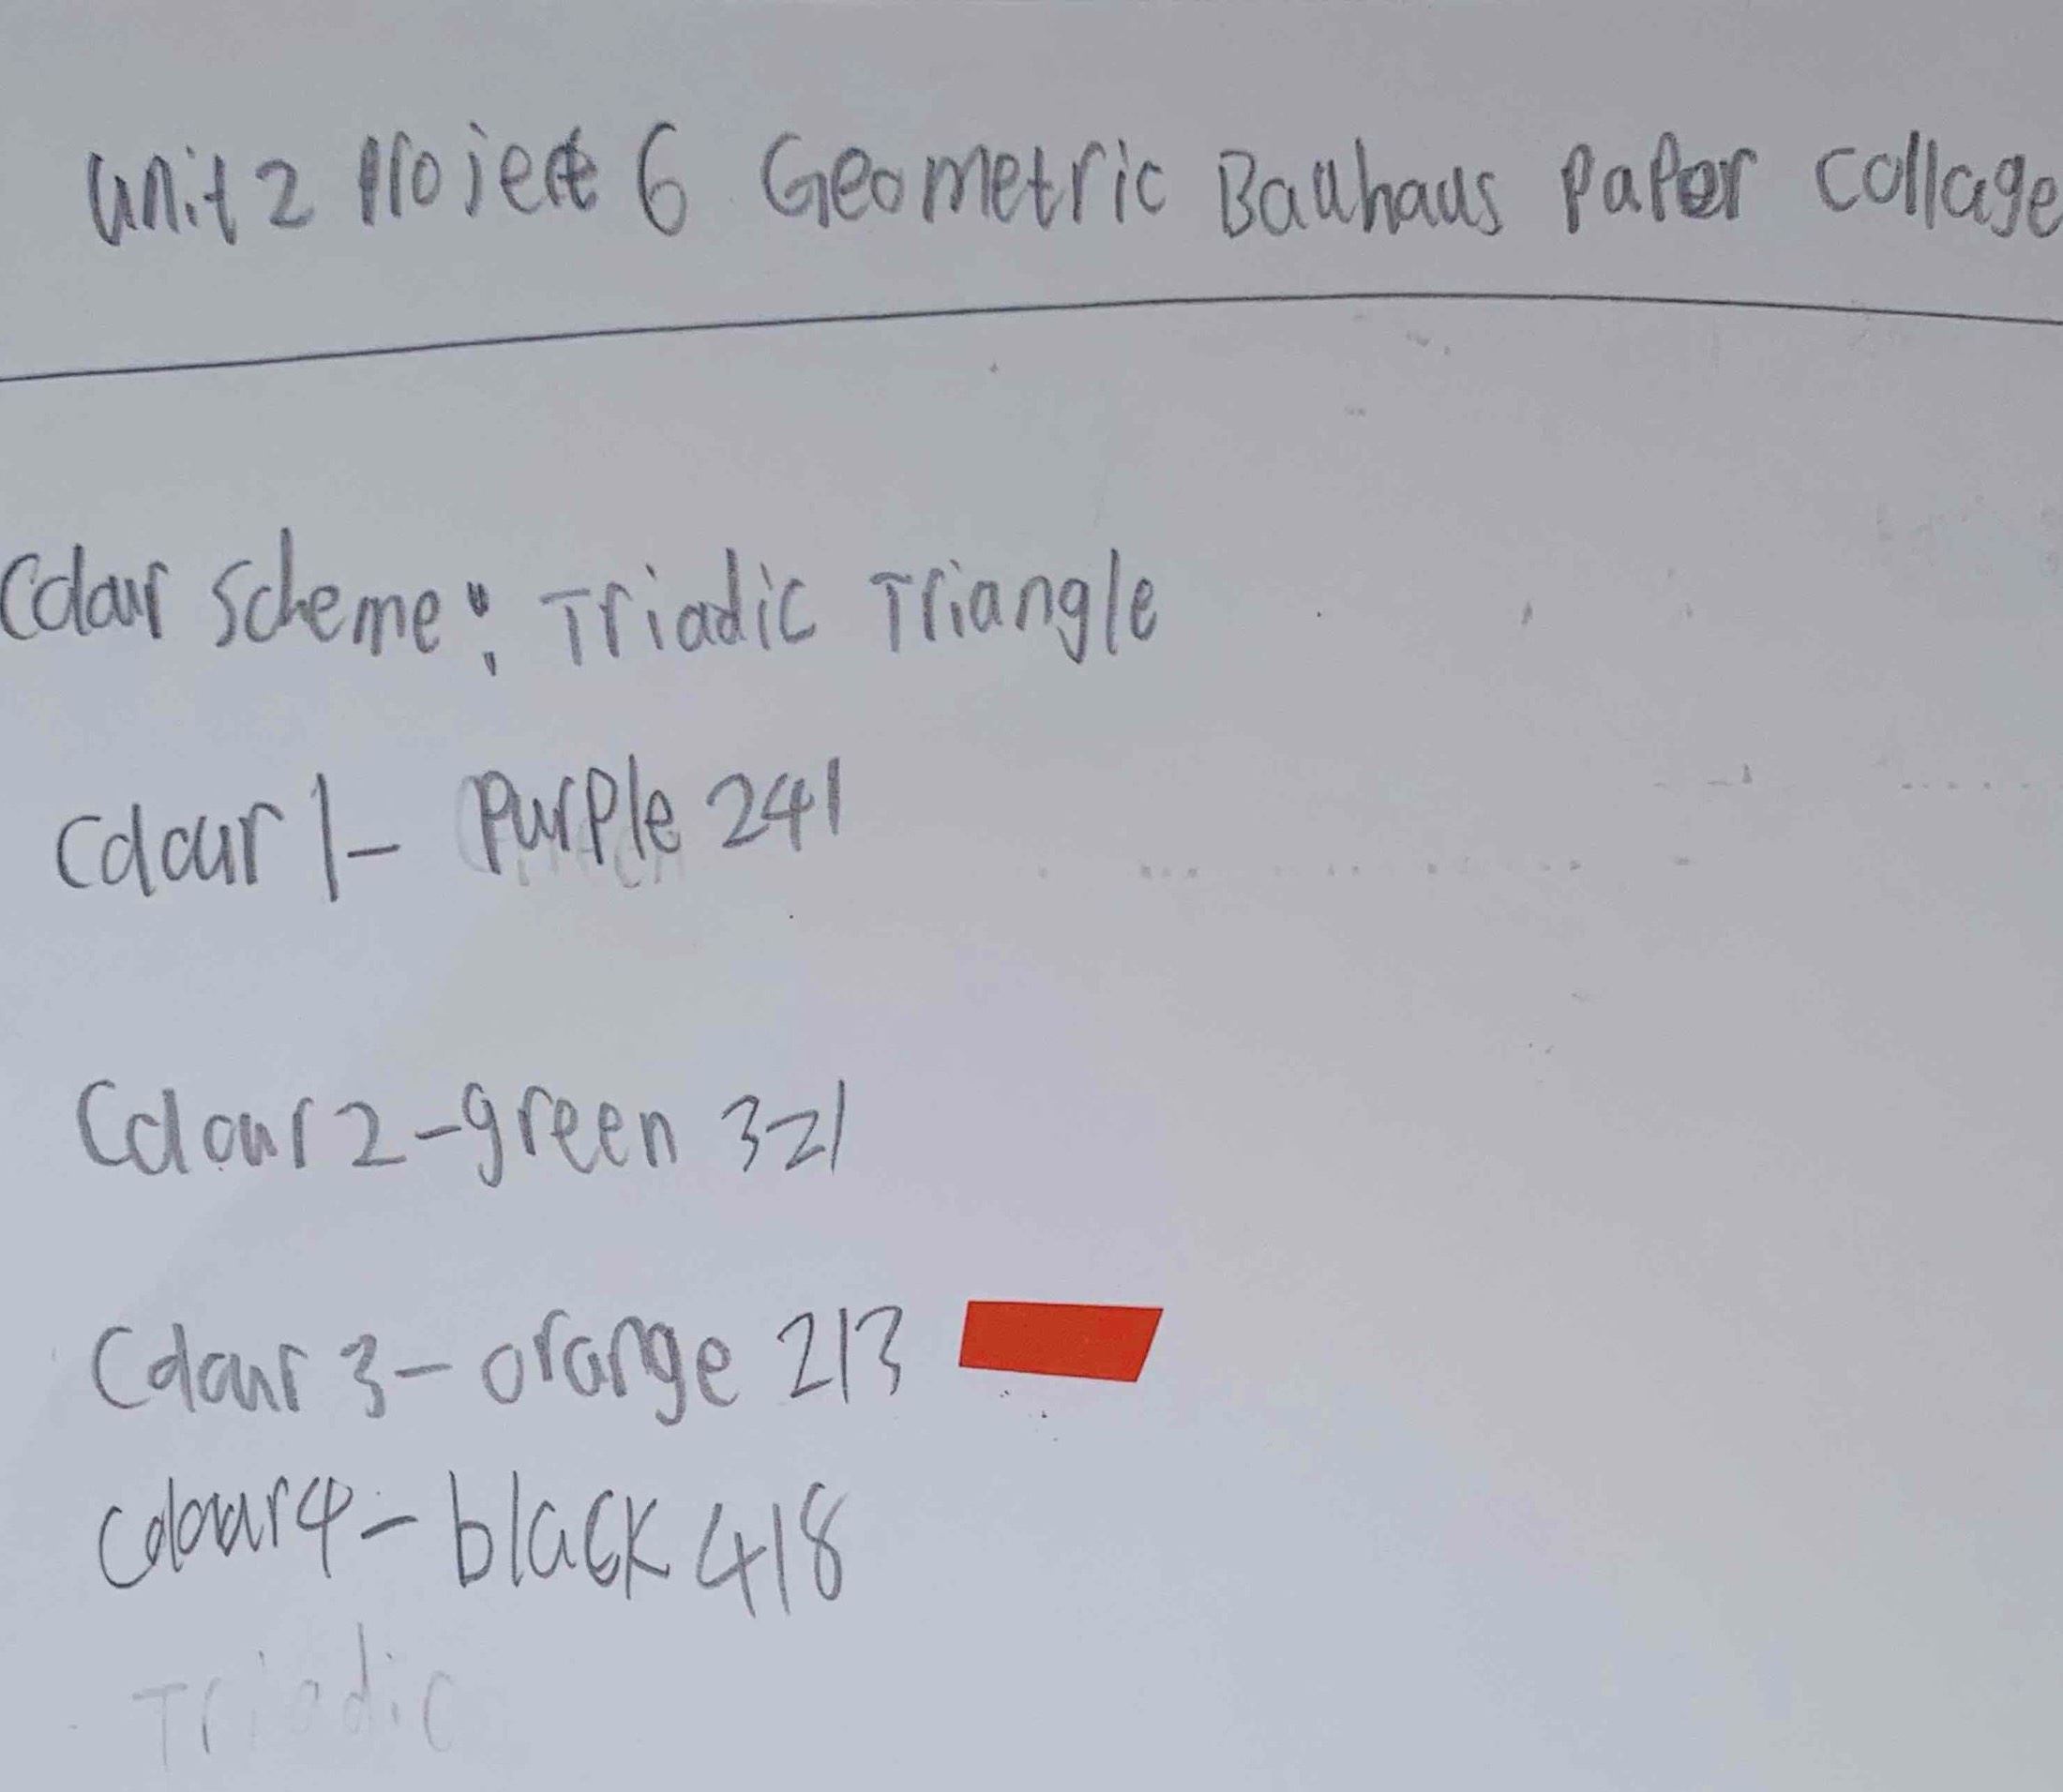 Unit 2 Project 6 Geometric Bauhaus Paper Collage
Colour Scheme: Triadic Triangle
Colour 1- Purple 241
Colour 2-green 321
Colour 3- orange 213
Colour 4- black 418
Triadic